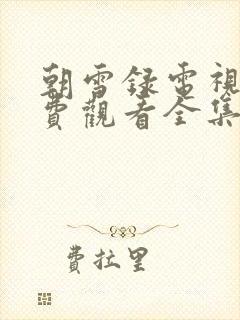 朝雪録電視
費觀看全集
費拉里